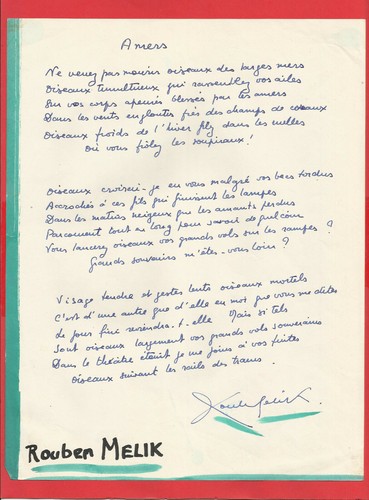 Amers
Ne venez pas mourir oiseaux des larges mers
Oiseaux tumultueux qui rassemblez vos ailes
Sur vos corps apeurés blessés par les amers
Dans les vents engloutis près des champs de coraux
Oiseaux froids de l'hiver filez dans les
Où vous frôlez les soupiraux !
Oiseaux croiserai-je en vous malgré vos becs tordus
Accrochés à ces fils qui finissent les lampes
Dans les matins neigeux que les amants perdus
Parcourent tout au long pour savoir de quel coin
Vous lancerez oiseaux vos grands vols sur les rampes ?
Grands souvenirs m'êtes-vous loin ?
Visage tendre et gestes lents oiseaux mortels
C'est d'une autre que d'elle en mot que vous me dites
de jour fixe reviendra-t-elle Mais si tels
Sont oiseaux largement vos grands vols souverains
Dans le théâtre étroit je me joins à vos fuites
Oiseaux suivant les rails des trains.
Rouben Melik
Rouben MELIK